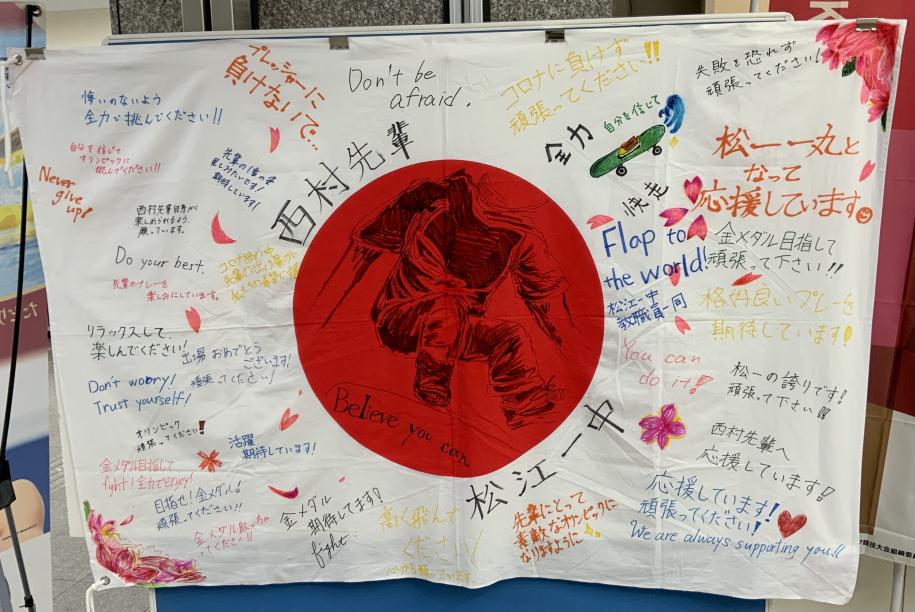 プレッシャーに
負けないで、
Don't be
afraid.
コロナに負けず
頑張ってください!!
失敗を恐れず
頑張ってください!
悔いのないよう
全力で挑んでください!!
自分を信じて
オリンピックに
挑んでください!!
Never
give
up!
西村先輩
全力
自分を信じて
快走
松一一丸と
なって
応援しています
西村先輩自身が
楽しめられるよう
願っています。
Do your best.
先輩のプレーを
楽しみにしています。
Flap to
the world!
松江一中
教職員一同
金メダル目指して
頑張って下さい!!
格好良いプレーを
期待しています!
リラックスして
楽しんでください!
出場おめでとう
ございます!
頑張ってください!
Don't worry!
Trust yourself!
You can
do it!
松一の誇りです!
頑張って下さい!!!
Believe you can
オリンピック
頑張ってください!
活躍
期待しています!
松江一中
西村先輩へ
応援しています!
金メダル目指して
fight!全力でenjoy!
目指せ!金メダル!
頑張ってください!!
金メダル
期待してます!
fight
高く飛んで
ください!
心から願っています。
先輩にとって
素敵なオリンピックに
なりますように
応援しています!
頑張ってください!
We are always supporting you!!